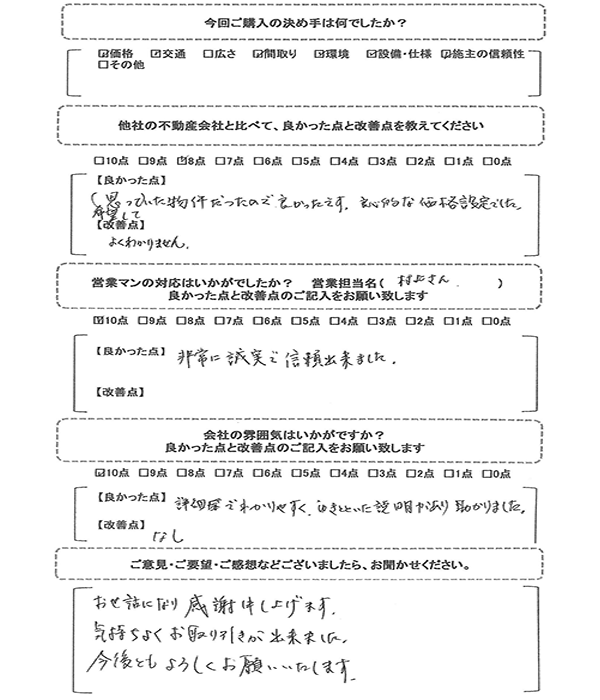 今回ご購入の決め手は何でしたか？
☑価格 ☑交通 □広さ ☑間取り ☑環境 ☑設備・仕様 ☑施主の信頼性
□その他
他社の不動産会社と比べて、良かった点と改善点を教えてください
□10点 □9点 ☑8点 □7点 □6点 □5点 □4点 □3点 □2点 □1点 □0点
【良かった点】
思っていた物件だったので良かったです。良心的な価格設定でした。
希望して
【改善点】
よくわかりません。
営業マンの対応はいかがでしたか？ 営業担当名( 村上さん )
良かった点と改善点のご記入をお願い致します
☑10点 □9点 □8点 □7点 □6点 □5点 □4点 □3点 □2点 □1点 □0点
【良かった点】 非常に誠実で信頼出来ました。
【改善点】
会社の雰囲気はいかがですか？
良かった点と改善点のご記入をお願い致します
☑10点 □9点 □8点 □7点 □6点 □5点 □4点 □3点 □2点 □1点 □0点
【良かった点】 でわかりやすく、 説明があり助かりました。
【改善点】
なし
ご意見・ご要望・ご感想などございましたら、お聞かせください。
お世話になり感謝申し上げます。
気持ちよくお取り引きが出来ました。
今後ともよろしくお願いいたします。